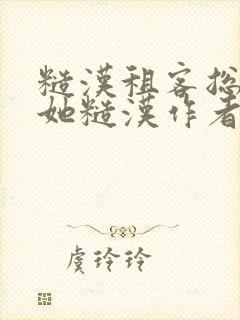 糙漢租客總
她糙漢作者
虞玲玲